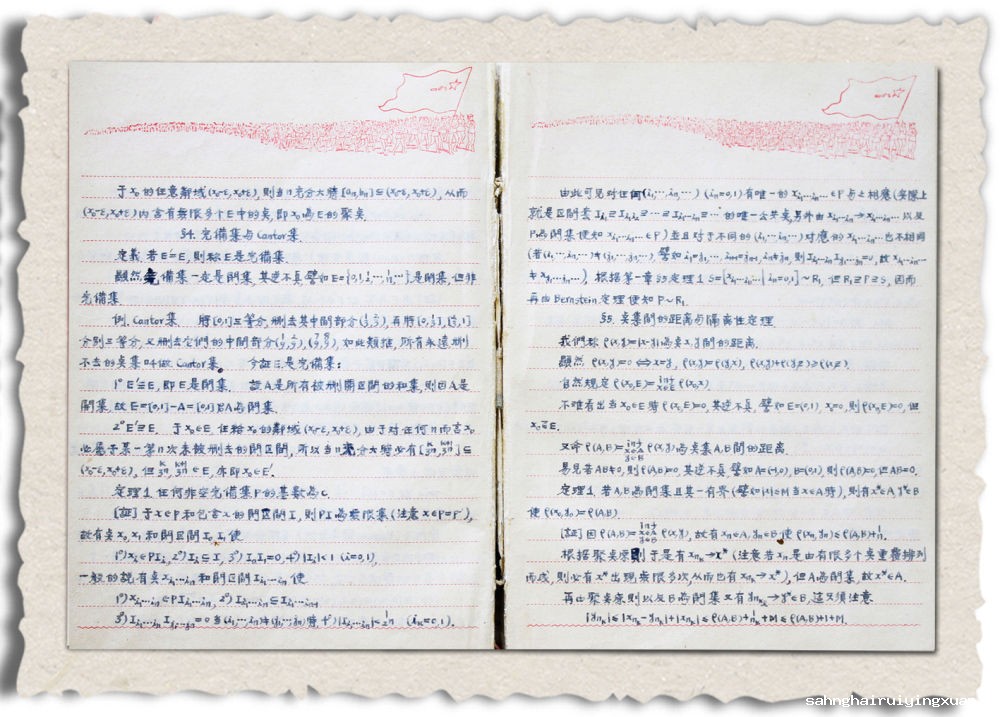 于 x₀ 的任意鄰域 (x₀-ε, x₀+ε), 則当 n 充分大時 [aₙ,bₙ]⊆(x₀-ε, x₀+ε), 从而
(x₀-ε, x₀+ε) 内含有無限多个 E 中的矣, 即 x₀ 為 E 的聚矣.
§4. 完備集与 Cantor 集.
定義 若 E'=E, 則称 E 是完備集.
顯然 完備集一定是閉集, 其逆不真, 譬如 E=[0,1,½,…,1/n,…] 是閉集, 但非
完備集.
例. Cantor 集 将 [0,1] 三等分, 删去其中間部分 (⅓,⅔), 再将 [0,⅓], [⅔,1]
分别三等分, 又删去它們的中間部分 (1/9,2/9), (7/9,8/9), 如此類推, 所有永遠删
不去的矣集叫做 Cantor 集. 今証 E 是完備集:
1° E'⊆E, 即 E 是閉集. 設 A 是所有被删開区間的和集, 則因 A 是
開集, 故 E=[0,1]-A=[0,1]∁A 為閉集.
2° E'⊇E. 于 x₀∈E, 任給 x₀ 的鄰域 (x₀-ε, x₀+ε), 由于对任何 n 而言 x₀
必属于某一第 n 次未被删去的閉区間, 所以当 n 充分大時必有 [k/3ⁿ, (k+1)/3ⁿ]⊆
(x₀-ε, x₀+ε), 但 k/3ⁿ, (k+1)/3ⁿ∈E, 亦即 x₀∈E'.
定理 1. 任何非空完備集 P 的基数為 c.
[証] 于 x∈P 和包含 x 的開区間 I, 則 PI 為無限集 (注意 x∈P=P'),
故有矣 x₀, x₁ 和閉区間 I₀, I₁ 使
1°) xᵢ∈PIᵢ, 2°) Iᵢ⊆I, 3°) I₀I₁=0, 4°) |Iᵢ|<1 (i=0,1),
一般的説有矣 x_{i₁…iₙ} 和閉区間 I_{i₁…iₙ} 使
1°) x_{i₁…iₙ}∈PI_{i₁…iₙ}, 2°) I_{i₁…iₙ}⊆I_{i₁…iₙ₋₁}
3°) I_{i₁…iₙ}I_{j₁…jₙ}=0 当 (i₁,…,iₙ)≠(j₁,…,jₙ) 時, 4°) |I_{i₁…iₙ}|<1/2ⁿ (iₖ=0,1).
由此可見对任何 (i₁,…iₙ…) (iₙ=0,1) 有唯一的 x_{i₁…iₙ…}∈P 与之相應 (実際上
就是区間套 I_{i₁}⊇I_{i₁i₂}⊇…⊇I_{i₁…iₙ}⊇… 的唯一公共矣, 另外由 x_{i₁…iₙ}→x_{i₁…iₙ…} 以及
P 為閉集便知 x_{i₁…iₙ…}∈P) 並且对于不同的 (i₁,…iₙ…) 对應的 x_{i₁…iₙ…} 也不相同
(若 (i₁,…iₙ…)≠(j₁,…jₙ…), 譬如 i₁=j₁,…iₙ₋₁=jₙ₋₁, iₙ≠jₙ, 則 I_{i₁…iₙ}I_{j₁…jₙ}=0, 故 x_{i₁…iₙ…}
≠x_{j₁…jₙ…}). 根据第一章 §5 定理 1 S=[x_{i₁…iₙ…}|iₙ=0,1]~R₁, 但 R₁⊇P⊇S, 因而
再由 Bernstein 定理便知 P~R₁.
§5. 矣集間的距离与隔离性定理.
我們称 ρ(x,y)=|x-y| 為矣 x,y 間的距离.
顯然 ρ(x,y)=0⇔x=y, ρ(x,y)=ρ(y,x), ρ(x,y)+ρ(y,z)≥ρ(x,z).
自然規定 ρ(x₀,E)=inf_{x∈E} ρ(x₀,x).
不难看出当 x₀∈E 時 ρ(x₀,E)=0, 其逆不真, 譬如 E=(0,1), x₀=0, 則 ρ(x₀,E)=0, 但
x₀∉E.
又命 ρ(A,B)=inf_{x∈A, y∈B} ρ(x,y) 為矣集 A,B 間的距离.
易見若 AB≠0, 則 ρ(A,B)=0, 其逆不真, 譬如 A=(-1,0), B=(0,1), 則 ρ(A,B)=0, 但 AB=0.
定理 1. 若 A,B 為閉集且其一有界 (譬如 |x|≤M 当 x∈A 時), 則有 x*∈A, y*∈B
使 ρ(x₀,y₀)=ρ(A,B).
[証] 因 ρ(A,B)=inf_{x∈A, y∈B} ρ(x,y), 故有 xₙ∈A, yₙ∈B 使 ρ(xₙ,yₙ)≤ρ(A,B)+1/n.
根据聚矣原則于是有 x_{nₖ}→x* (注意若 xₙ 是由有限多个矣重覆排列
而成, 則必有 x* 出現無限多次从而也有 x_{nₖ}→x*), 但 A 為閉集, 故 x*∈A.
再由聚矣原則以及 B 為閉集又有 y_{nₖᵢ}→y*∈B, 這又須注意
|y_{nₖ}|≤|x_{nₖ}-y_{nₖ}|+|x_{nₖ}|≤ρ(A,B)+1/nₖ+M≤ρ(A,B)+1+M.
sahnghairuiyingxua